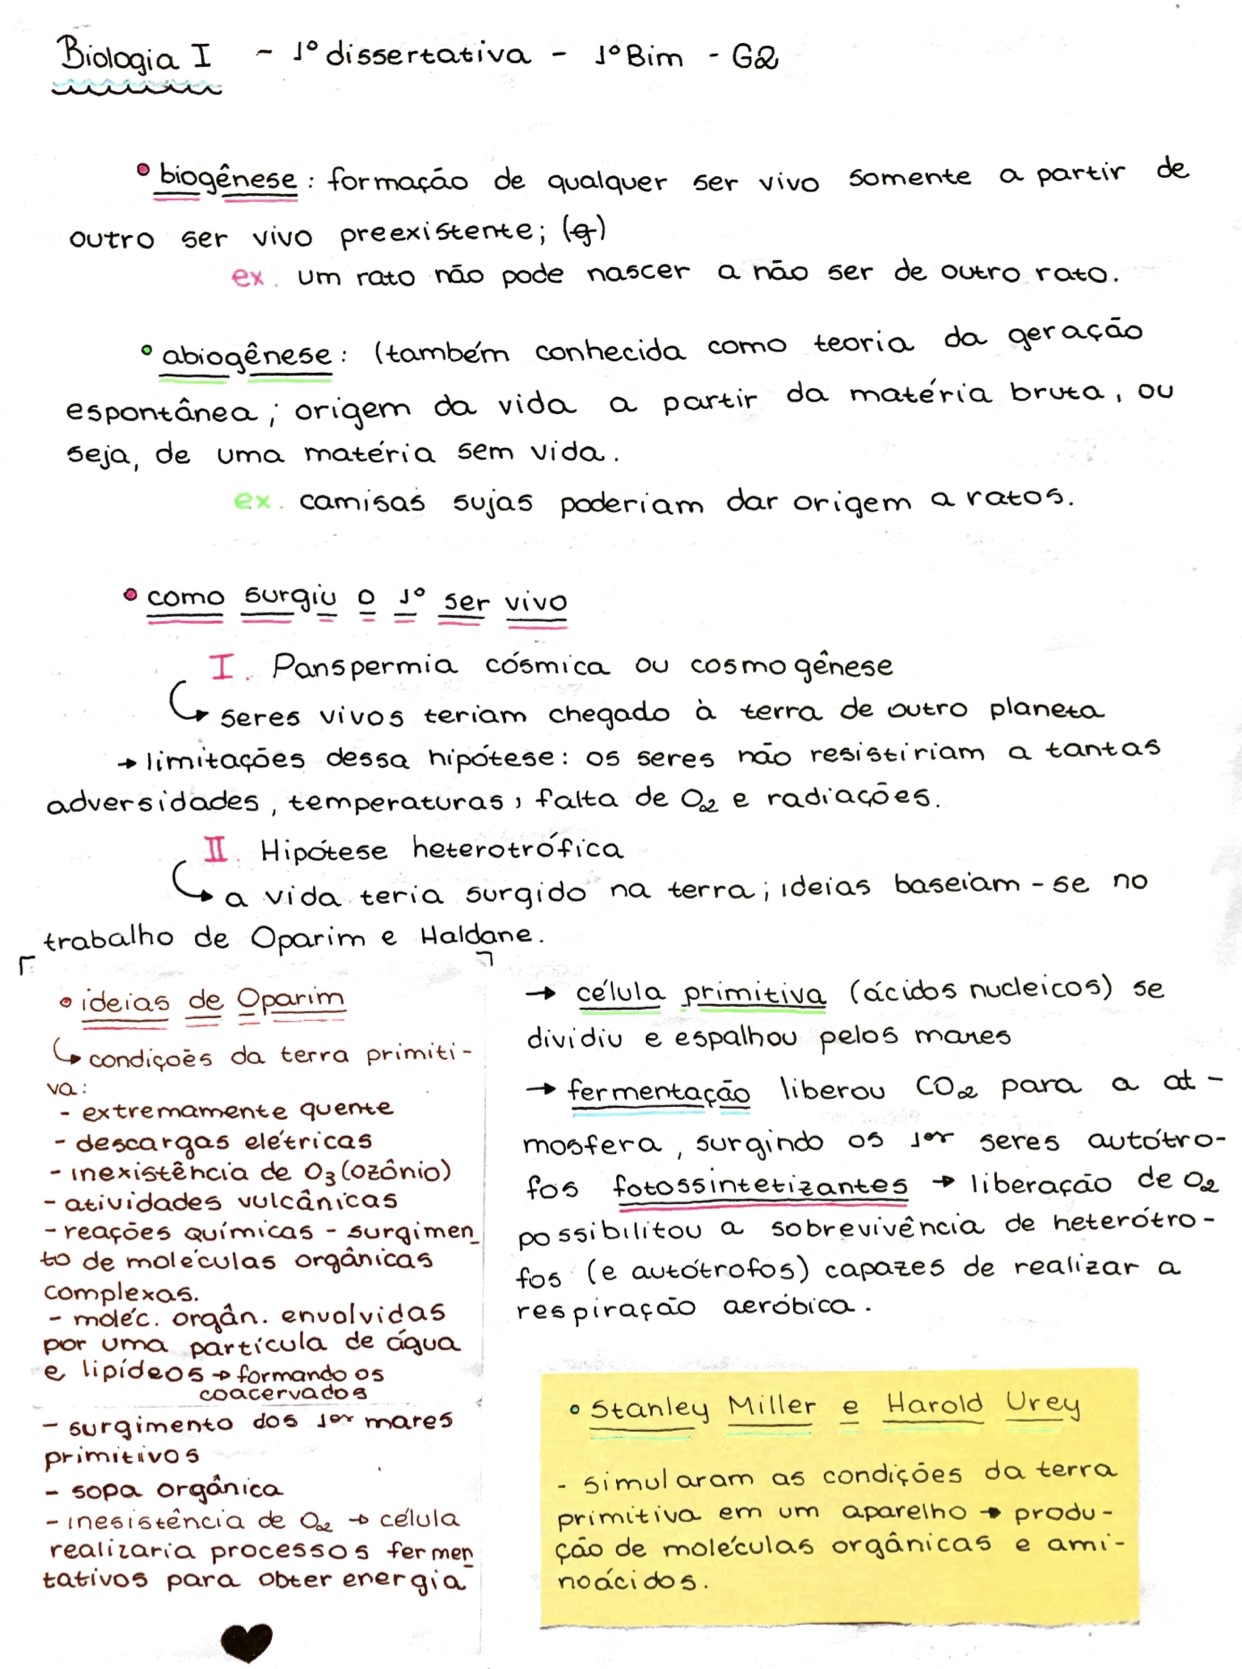 Biologia I - 1º dissertativa - 1º Bim - G2
• biogênese: formação de qualquer ser vivo somente a partir de
outro ser vivo preexistente; (g)
ex. um rato não pode nascer a não ser de outro rato.
• abiogênese: (também conhecida como teoria da geração
espontânea; origem da vida a partir da matéria bruta, ou
seja, de uma matéria sem vida.
ex. camisas sujas poderiam dar origem a ratos.
• como surgiu o 1º ser vivo
I. Panspermia cósmica ou cosmogênese
↳ seres vivos teriam chegado à terra de outro planeta
→ limitações dessa hipótese: os seres não resistiriam a tantas
adversidades, temperaturas, falta de O2 e radiações.
II. Hipótese heterotrófica
↳ a vida teria surgido na terra; ideias baseiam-se no
trabalho de Oparim e Haldane.
• ideias de Oparim
↳ condições da terra primiti-
va:
- extremamente quente
- descargas elétricas
- inexistência de O3 (ozônio)
- atividades vulcânicas
- reações químicas - surgimen_
to de moléculas orgânicas
complexas.
- moléc. orgân. envolvidas
por uma partícula de água
e lipídeos → formando os
coacervados
- surgimento dos 1os mares
primitivos
- sopa orgânica
- inesistência de O2 → célula
realizaria processos fermen_
tativos para obter energia
→ célula primitiva (ácidos nucleicos) se
dividiu e espalhou pelos mares
→ fermentação liberou CO2 para a at-
mosfera, surgindo os 1os seres autótro-
fos fotossintetizantes → liberação de O2
possibilitou a sobrevivência de heterótro-
fos (e autótrofos) capazes de realizar a
respiração aeróbica.
• Stanley Miller e Harold Urey
- simularam as condições da terra
primitiva em um aparelho → produ-
ção de moléculas orgânicas e ami-
noácidos.